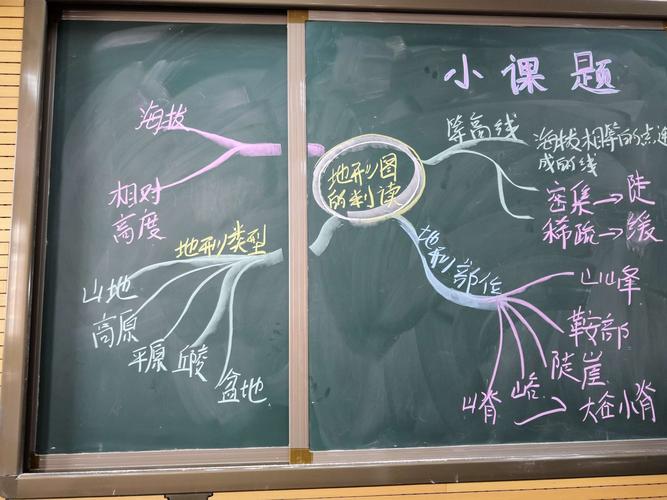 小课题
地形图
的判读
海拔
相对
高度
地形类型
山地
高原
平原
丘陵
盆地
等高线
海拔相等的点连
成的线
密集→陡
稀疏→缓
地形部位
山峰
鞍部
陡崖
山谷
山脊
大谷小脊